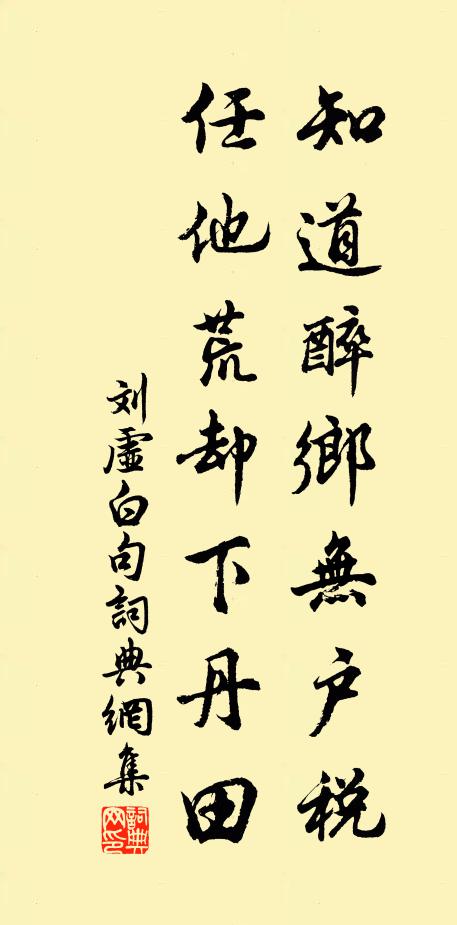 知道醉鄉無户税
任他荒却下丹田
刘虛白句詞典網集
詞典網印